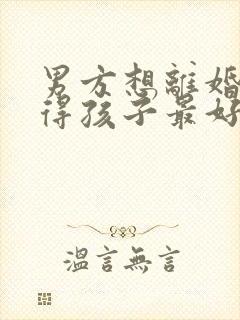 男方想離婚
得孩子最好
溫言無言